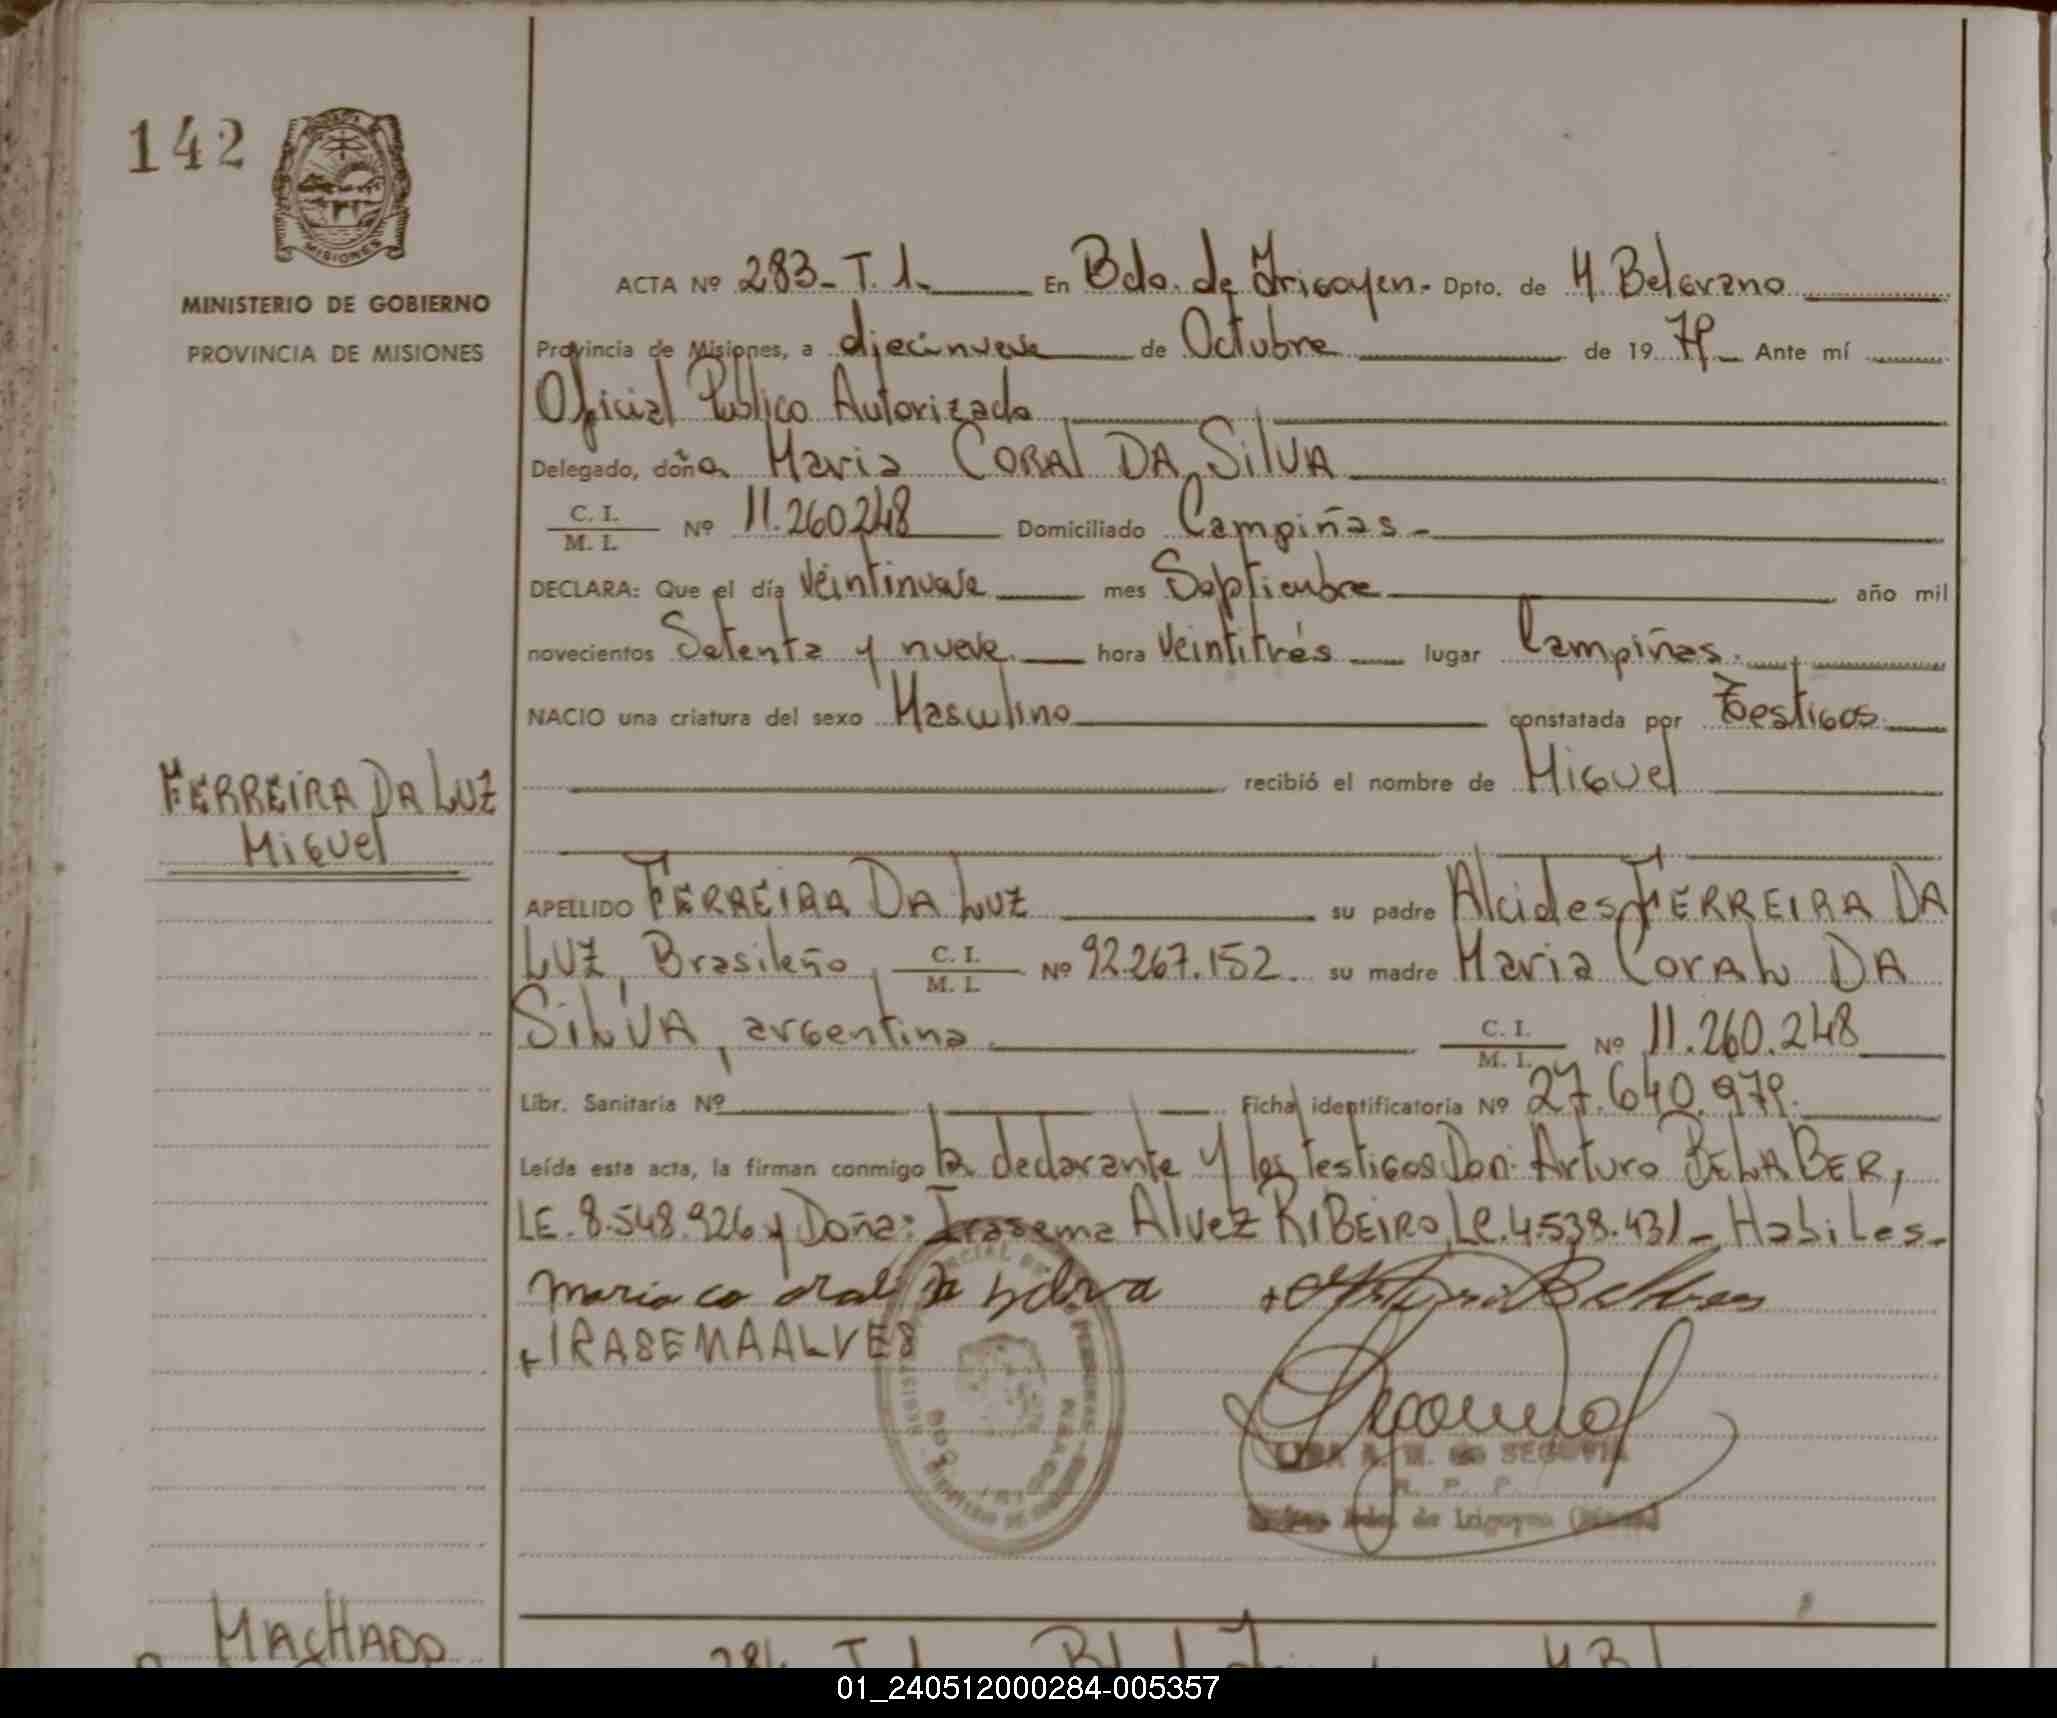 142
MISIONES
MINISTERIO DE GOBIERNO
PROVINCIA DE MISIONES
ACTA Nº 283-T.1. En Bdo. de Irigoyen. Dpto. de M. Belgrano
Provincia de Misiones, a diecinueve de Octubre de 19 79 Ante mí
Oficial Público Autorizado
Delegado, doña Maria CORAL DA SILVA
C. I.
M. I. Nº 11.260248 Domiciliado Campiñas
DECLARA: Que el día Veintinueve mes Septiembre año mil
novecientos Setenta y nueve hora Veintitrés lugar Campiñas.
NACIO una criatura del sexo Masculino constatada por Testigos
recibió el nombre de Miguel
FERREIRA DA LUZ
Miguel
APELLIDO FERREIRA DA LUZ su padre Alcides FERREIRA DA
LUZ, Brasileño, C. I. M. I. Nº 92.267.152. su madre Maria CORAL DA
SILVA, argentina C. I. M. I. Nº 11.260.248
Libr. Sanitaria Nº Ficha identificatoria Nº 27.640.979.
Leída esta acta, la firman conmigo la declarante y los testigos Don: Arturo BELABER,
LE. 8.548.926 y Doña: Irasema Alvez RIBEIRO, Le. 4.538.431 - Habiles.-
maria co oral da
+IRASEMAALVES
A. M. de SEGOVIA
R. P. P.
Bdo. de Irigoyen
MACHADO
284 T. 1
01_240512000284-005357